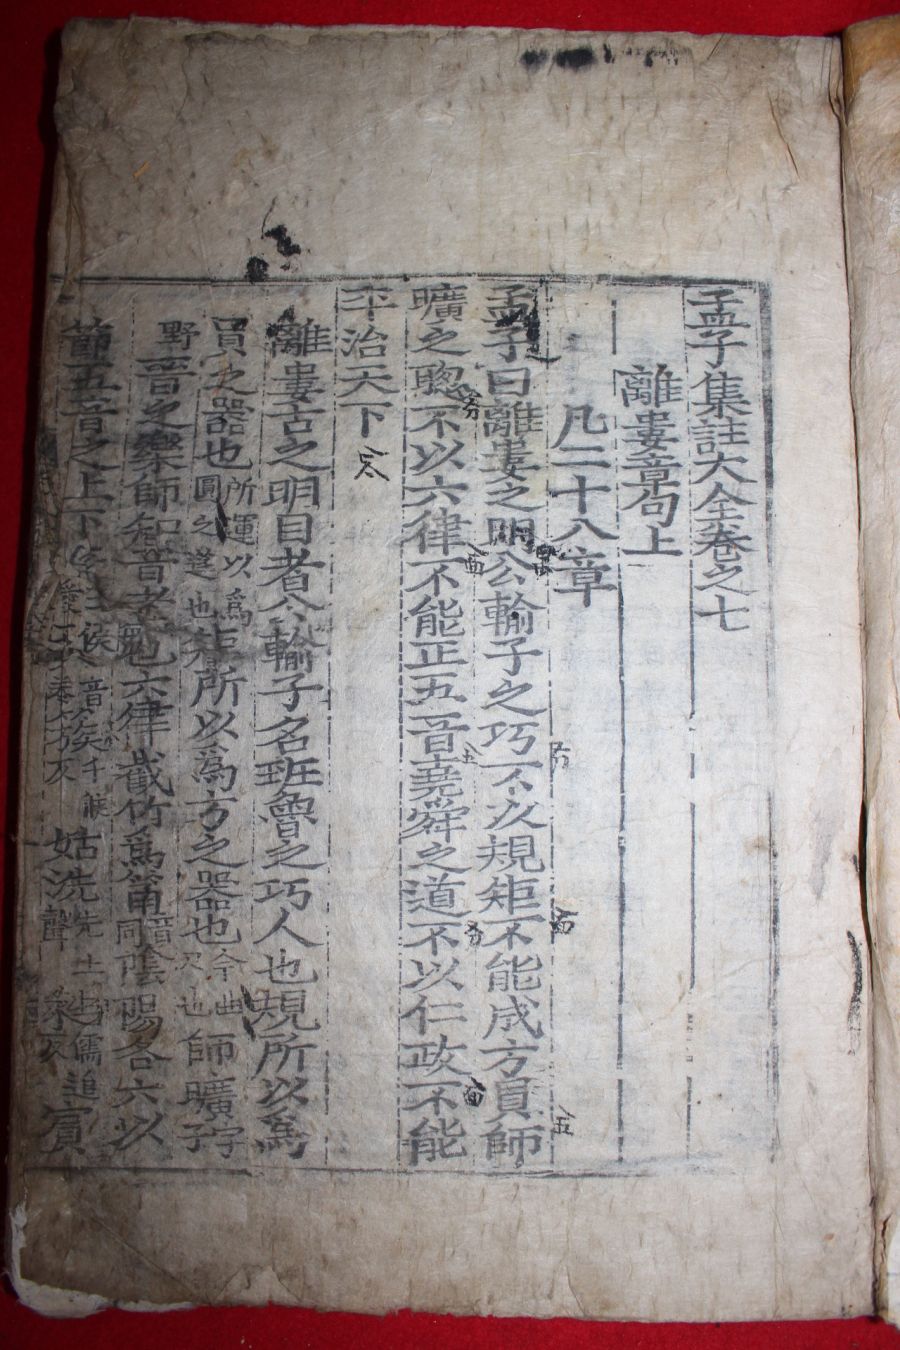 孟子集註大全卷之七
離婁章句上
凡二十八章
孟子曰離婁之明公輸子之巧不以規矩不能成方員師
曠之聰不以六律不能正五音堯舜之道不以仁政不能
平治天下
離婁古之明目者公輸子名班魯之巧人也規所以爲
員之器也所運以爲圓之也矩所以爲方之器也今曲尺也師曠字
野晉之樂師知音者也六律截竹爲筩陰陽各六以
節五音之上下姑洗賓